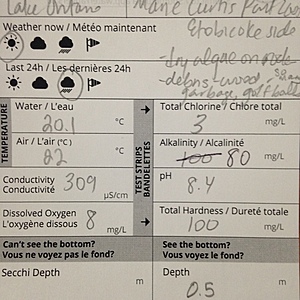 Lake Ontario
Marie Curtis Park
Etobicoke side
Weather now / Météo maintenant
-dry algae on rocks
Last 24h / Les dernières 24h
-debris - wood,
garbage, golf balls
TEMPERATURE
Water / L'eau
20.1 °C
Air / L'air (°C)
22 °C
Conductivity
Conductivité 309 µS/cm
Dissolved Oxygen
L'oxygène dissous 8 mg/L
TEST STRIPS
BANDELETTES
Total Chlorine / Chlore total
3 mg/L
Alkalinity / Alcalinité
100 80 mg/L
pH
8.4
Total Hardness / Dureté totale
100 mg/L
Can't see the bottom?
Vous ne voyez pas le fond?
Secchi Depth
m
See the bottom?
Vous voyez le fond?
Depth
0.5 m